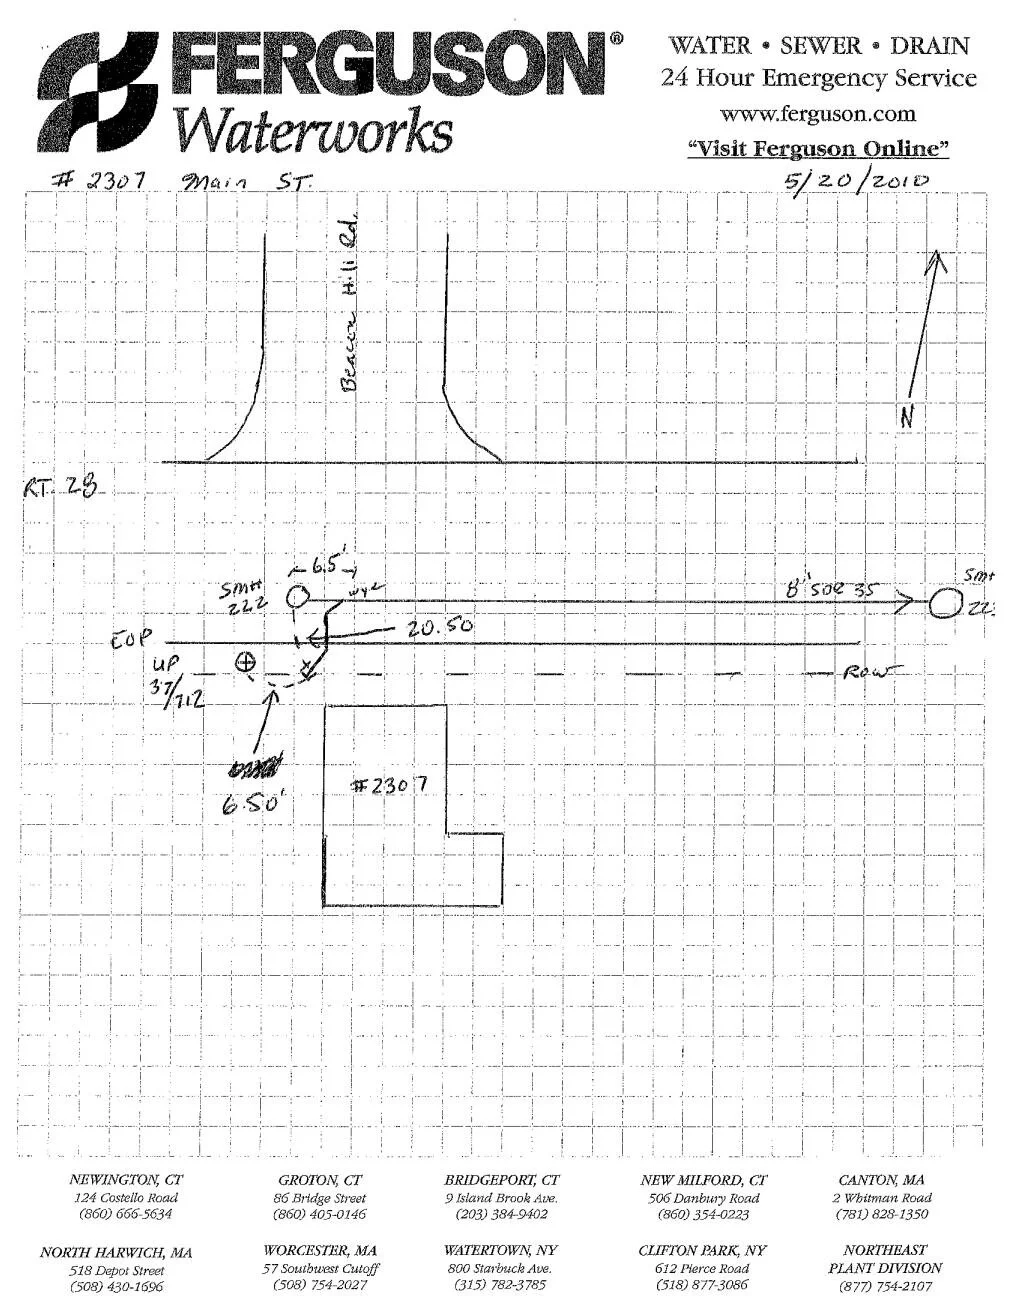 FERGUSON®
Waterworks
WATER • SEWER • DRAIN
24 Hour Emergency Service
www.ferguson.com
"Visit Ferguson Online"
# 2307 Main ST.
5/20/2010
Beacon Hill Rd.
N
RT. 28
6.5'
SMH
222
wye
8" SDR 35
SMH
EOP
20.50
UP
37/712
ROW
6.50'
#2307
NEWINGTON, CT
124 Costello Road
(860) 666-5634
GROTON, CT
86 Bridge Street
(860) 405-0146
BRIDGEPORT, CT
9 Island Brook Ave.
(203) 384-9402
NEW MILFORD, CT
506 Danbury Road
(860) 354-0223
CANTON, MA
2 Whitman Road
(781) 828-1350
NORTH HARWICH, MA
518 Depot Street
(508) 430-1696
WORCESTER, MA
57 Southwest Cutoff
(508) 754-2027
WATERTOWN, NY
800 Starbuck Ave.
(315) 782-3785
CLIFTON PARK, NY
612 Pierce Road
(518) 877-3086
NORTHEAST
PLANT DIVISION
(877) 754-2107